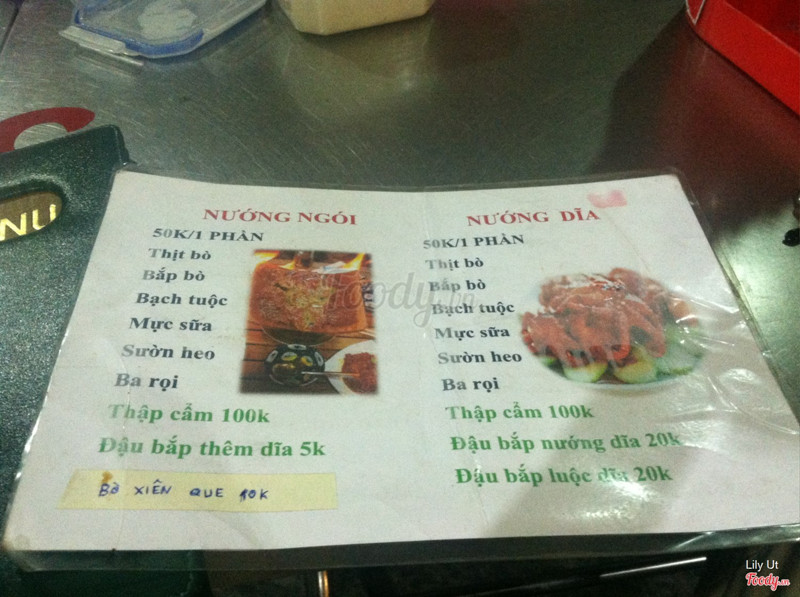 NU
NƯỚNG NGÓI
50K/1 PHẦN
Thịt bò
Bắp bò
Bạch tuộc
Mực sữa
Sườn heo
Ba rọi
Thập cẩm 100k
Đậu bắp thêm dĩa 5k
BÒ XIÊN QUE 10K
NƯỚNG DĨA
50K/1 PHẦN
Thịt bò
Bắp bò
Bạch tuộc
Mực sữa
Sườn heo
Ba rọi
Thập cẩm 100k
Đậu bắp nướng dĩa 20k
Đậu bắp luộc dĩa 20k
foody.vn
Lily Ut
Foody.vn